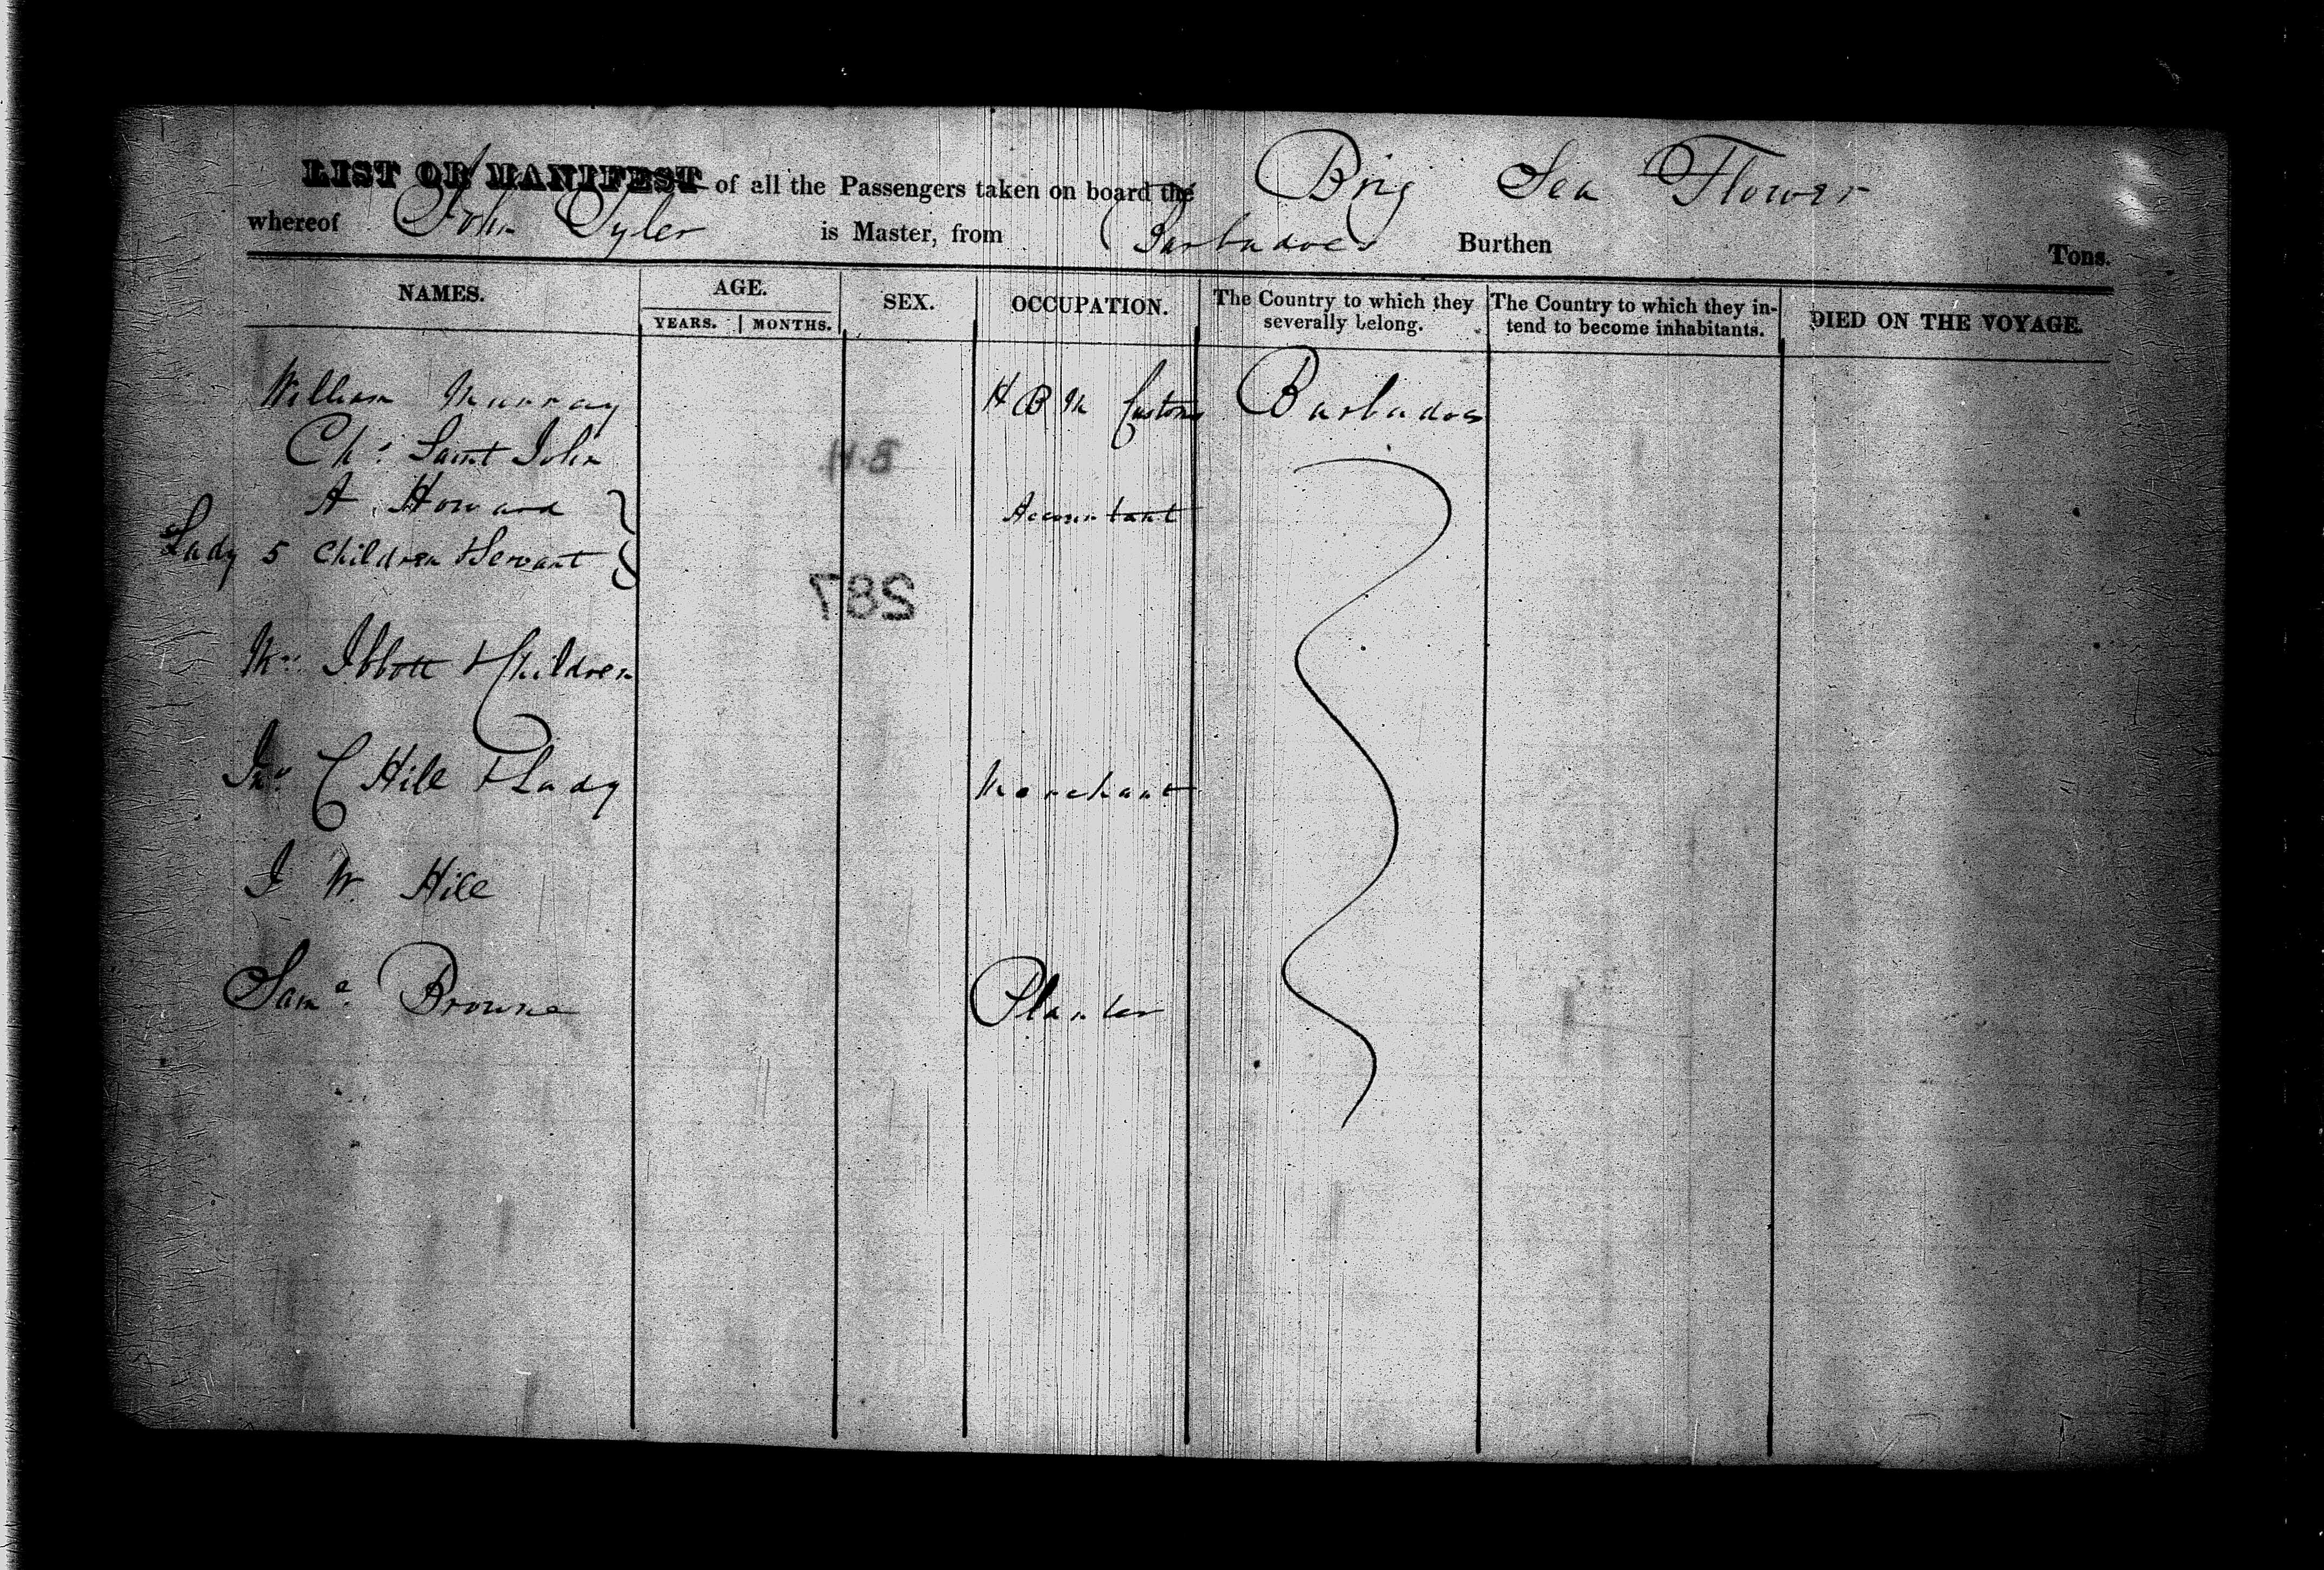 LIST OR MANIFEST of all the Passengers taken on board the Brig Sea Flower
whereof John Tyler is Master, from Barbadoes Burthen Tons.
NAMES. AGE. SEX. OCCUPATION. The Country to which they severally belong. The Country to which they intend to become inhabitants. DIED ON THE VOYAGE.
YEARS. MONTHS.
William Murray H B M Customs Barbados
Chs Saint John
A Howard Accountant
Lady 5 Children & Servant
287
Mrs Ibbott & Children
Jno C Hill & Lady Merchant
J W Hill
Saml Browne Planter